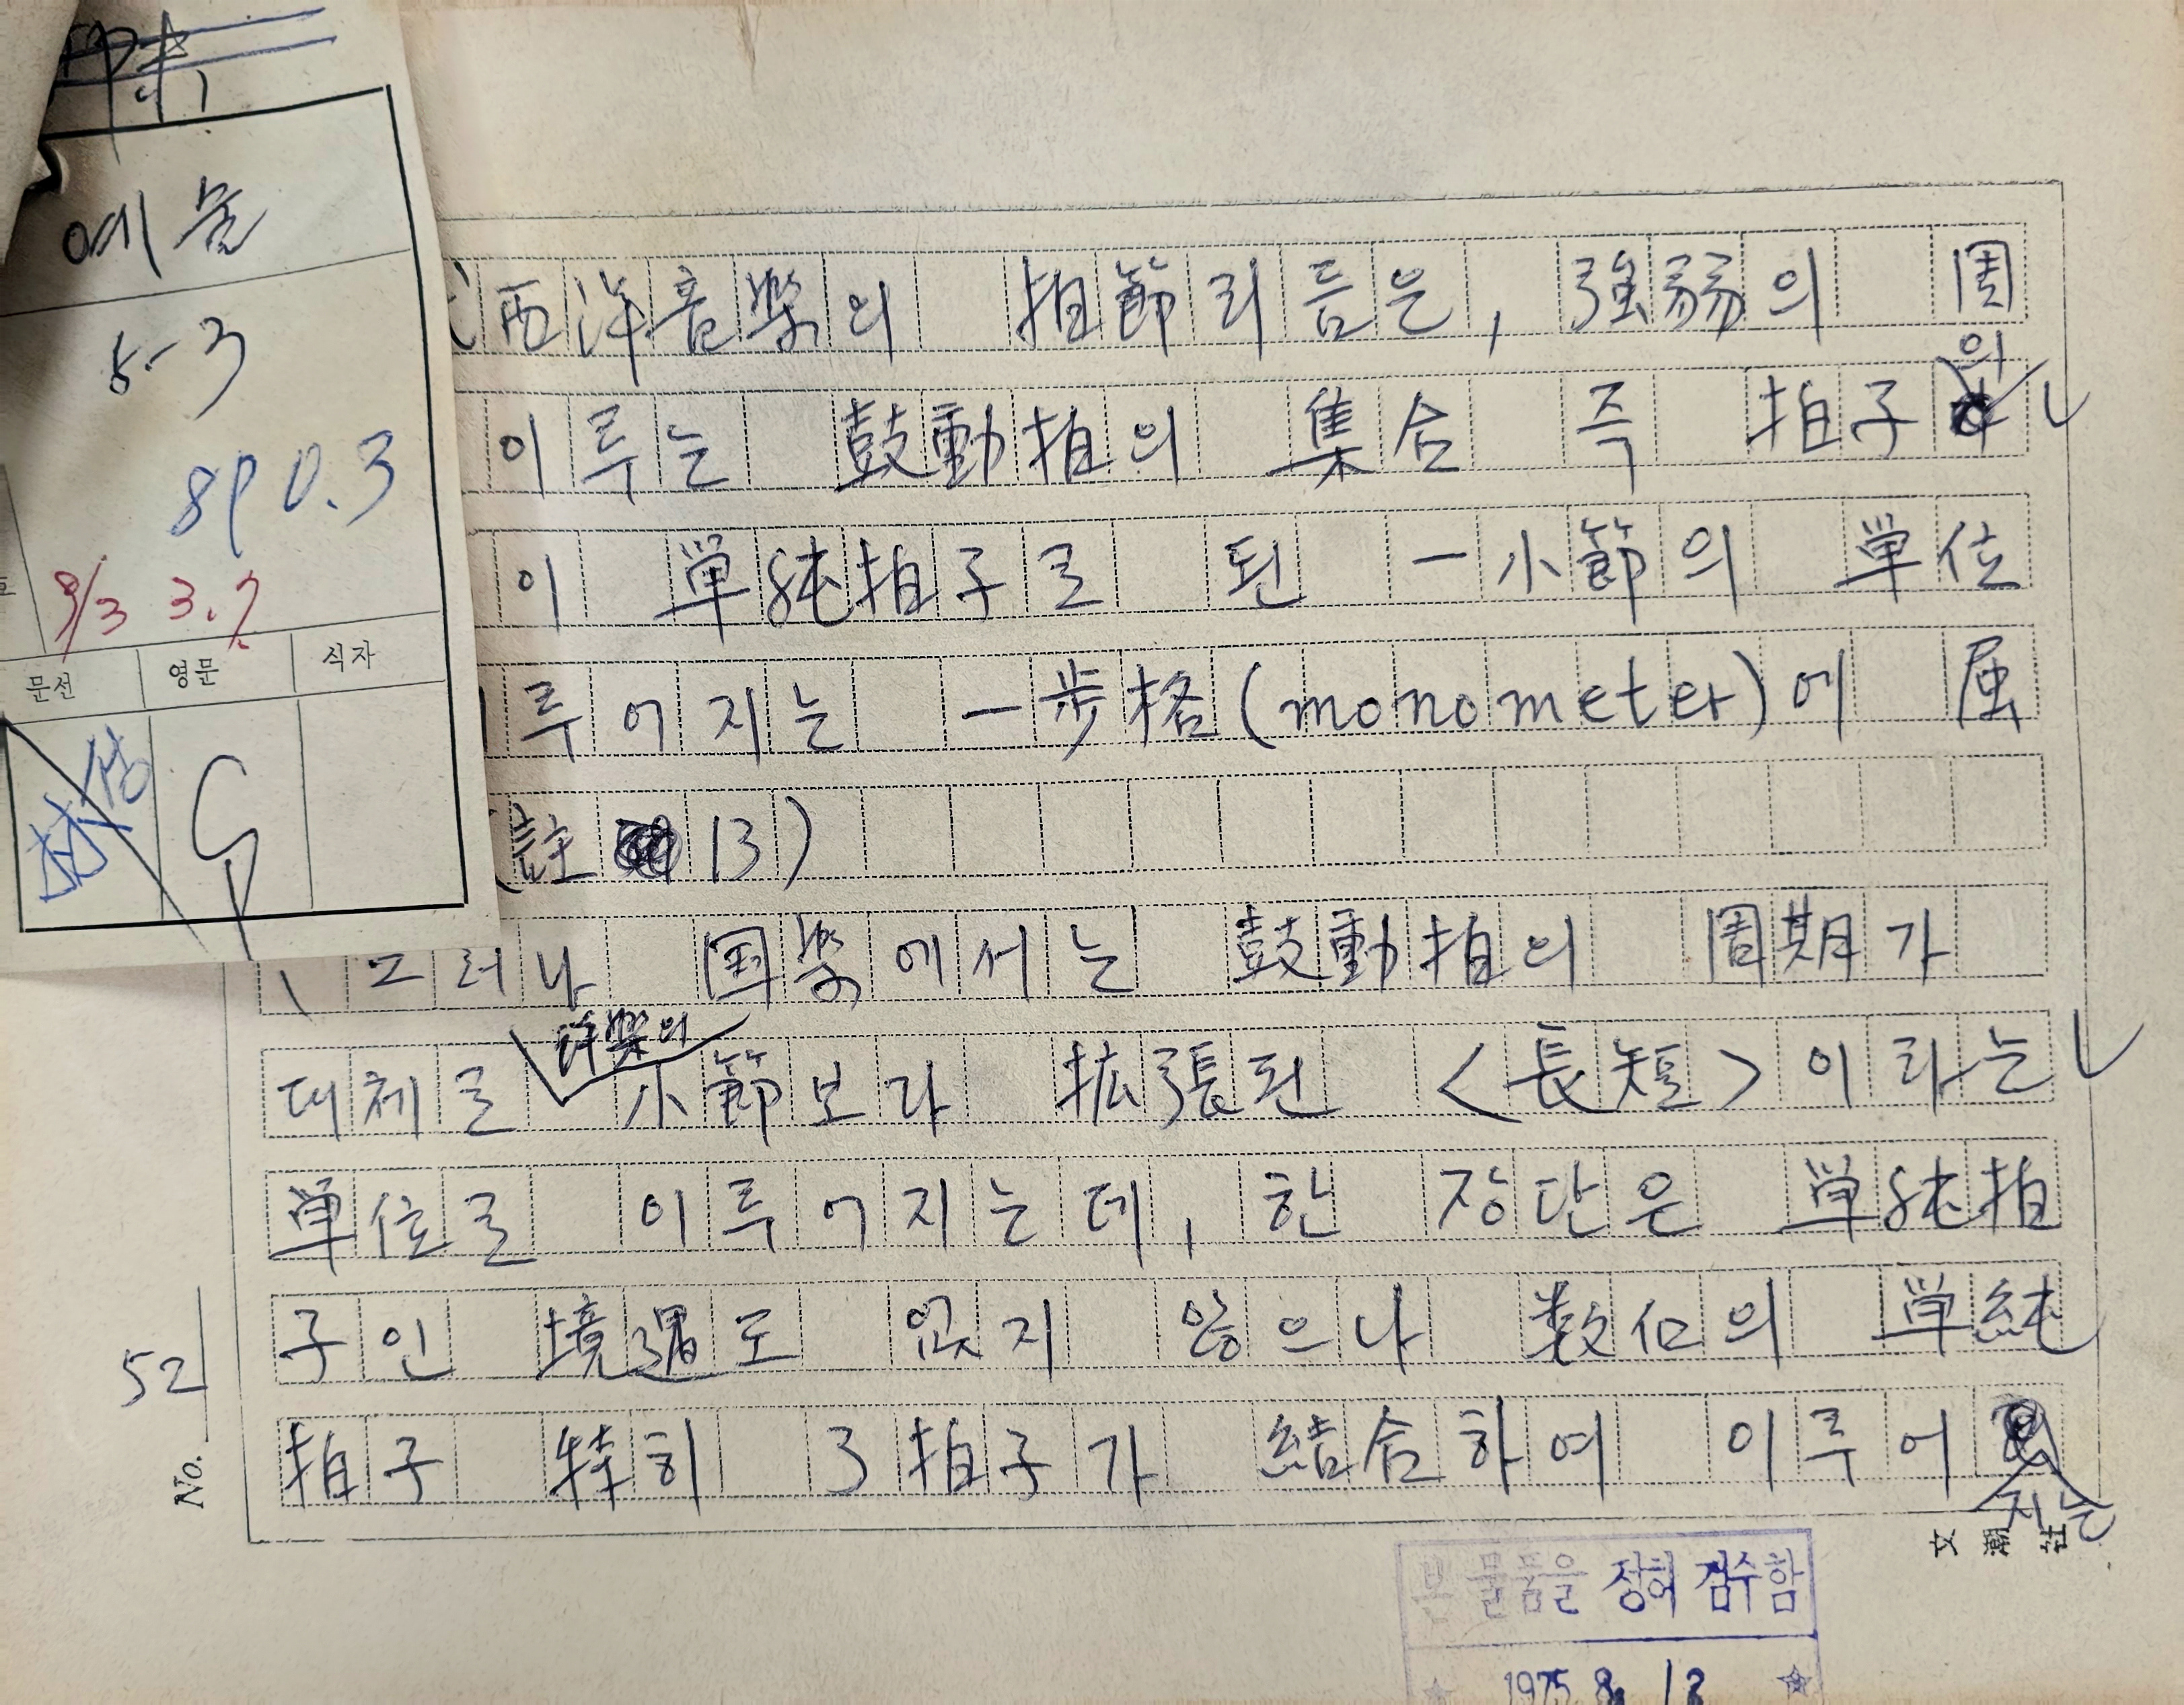 예논
5-3
8P 0.3
9/3 3.7
문선 영문 식자
西洋音樂의 拍節리듬은, 強弱의 周
이루는 鼓動拍의 集合 즉 拍子의
이 単純拍子로 된 一小節의 単位
루어지는 一步格(monometer)에 属
(註 13)
그러나 国楽에서는 鼓動拍의 周期가
대체로 洋樂의 小節보다 拡張된 <長短>이라는
単位로 이루어지는데, 한 장단은 単純拍
子인 境遇도 없지 않으나 数個의 単純
拍子 特히 3拍子가 結合하여 이루어지는
No. 52
文潮社
본 물품을 정히 검수함
1975. 8. 12